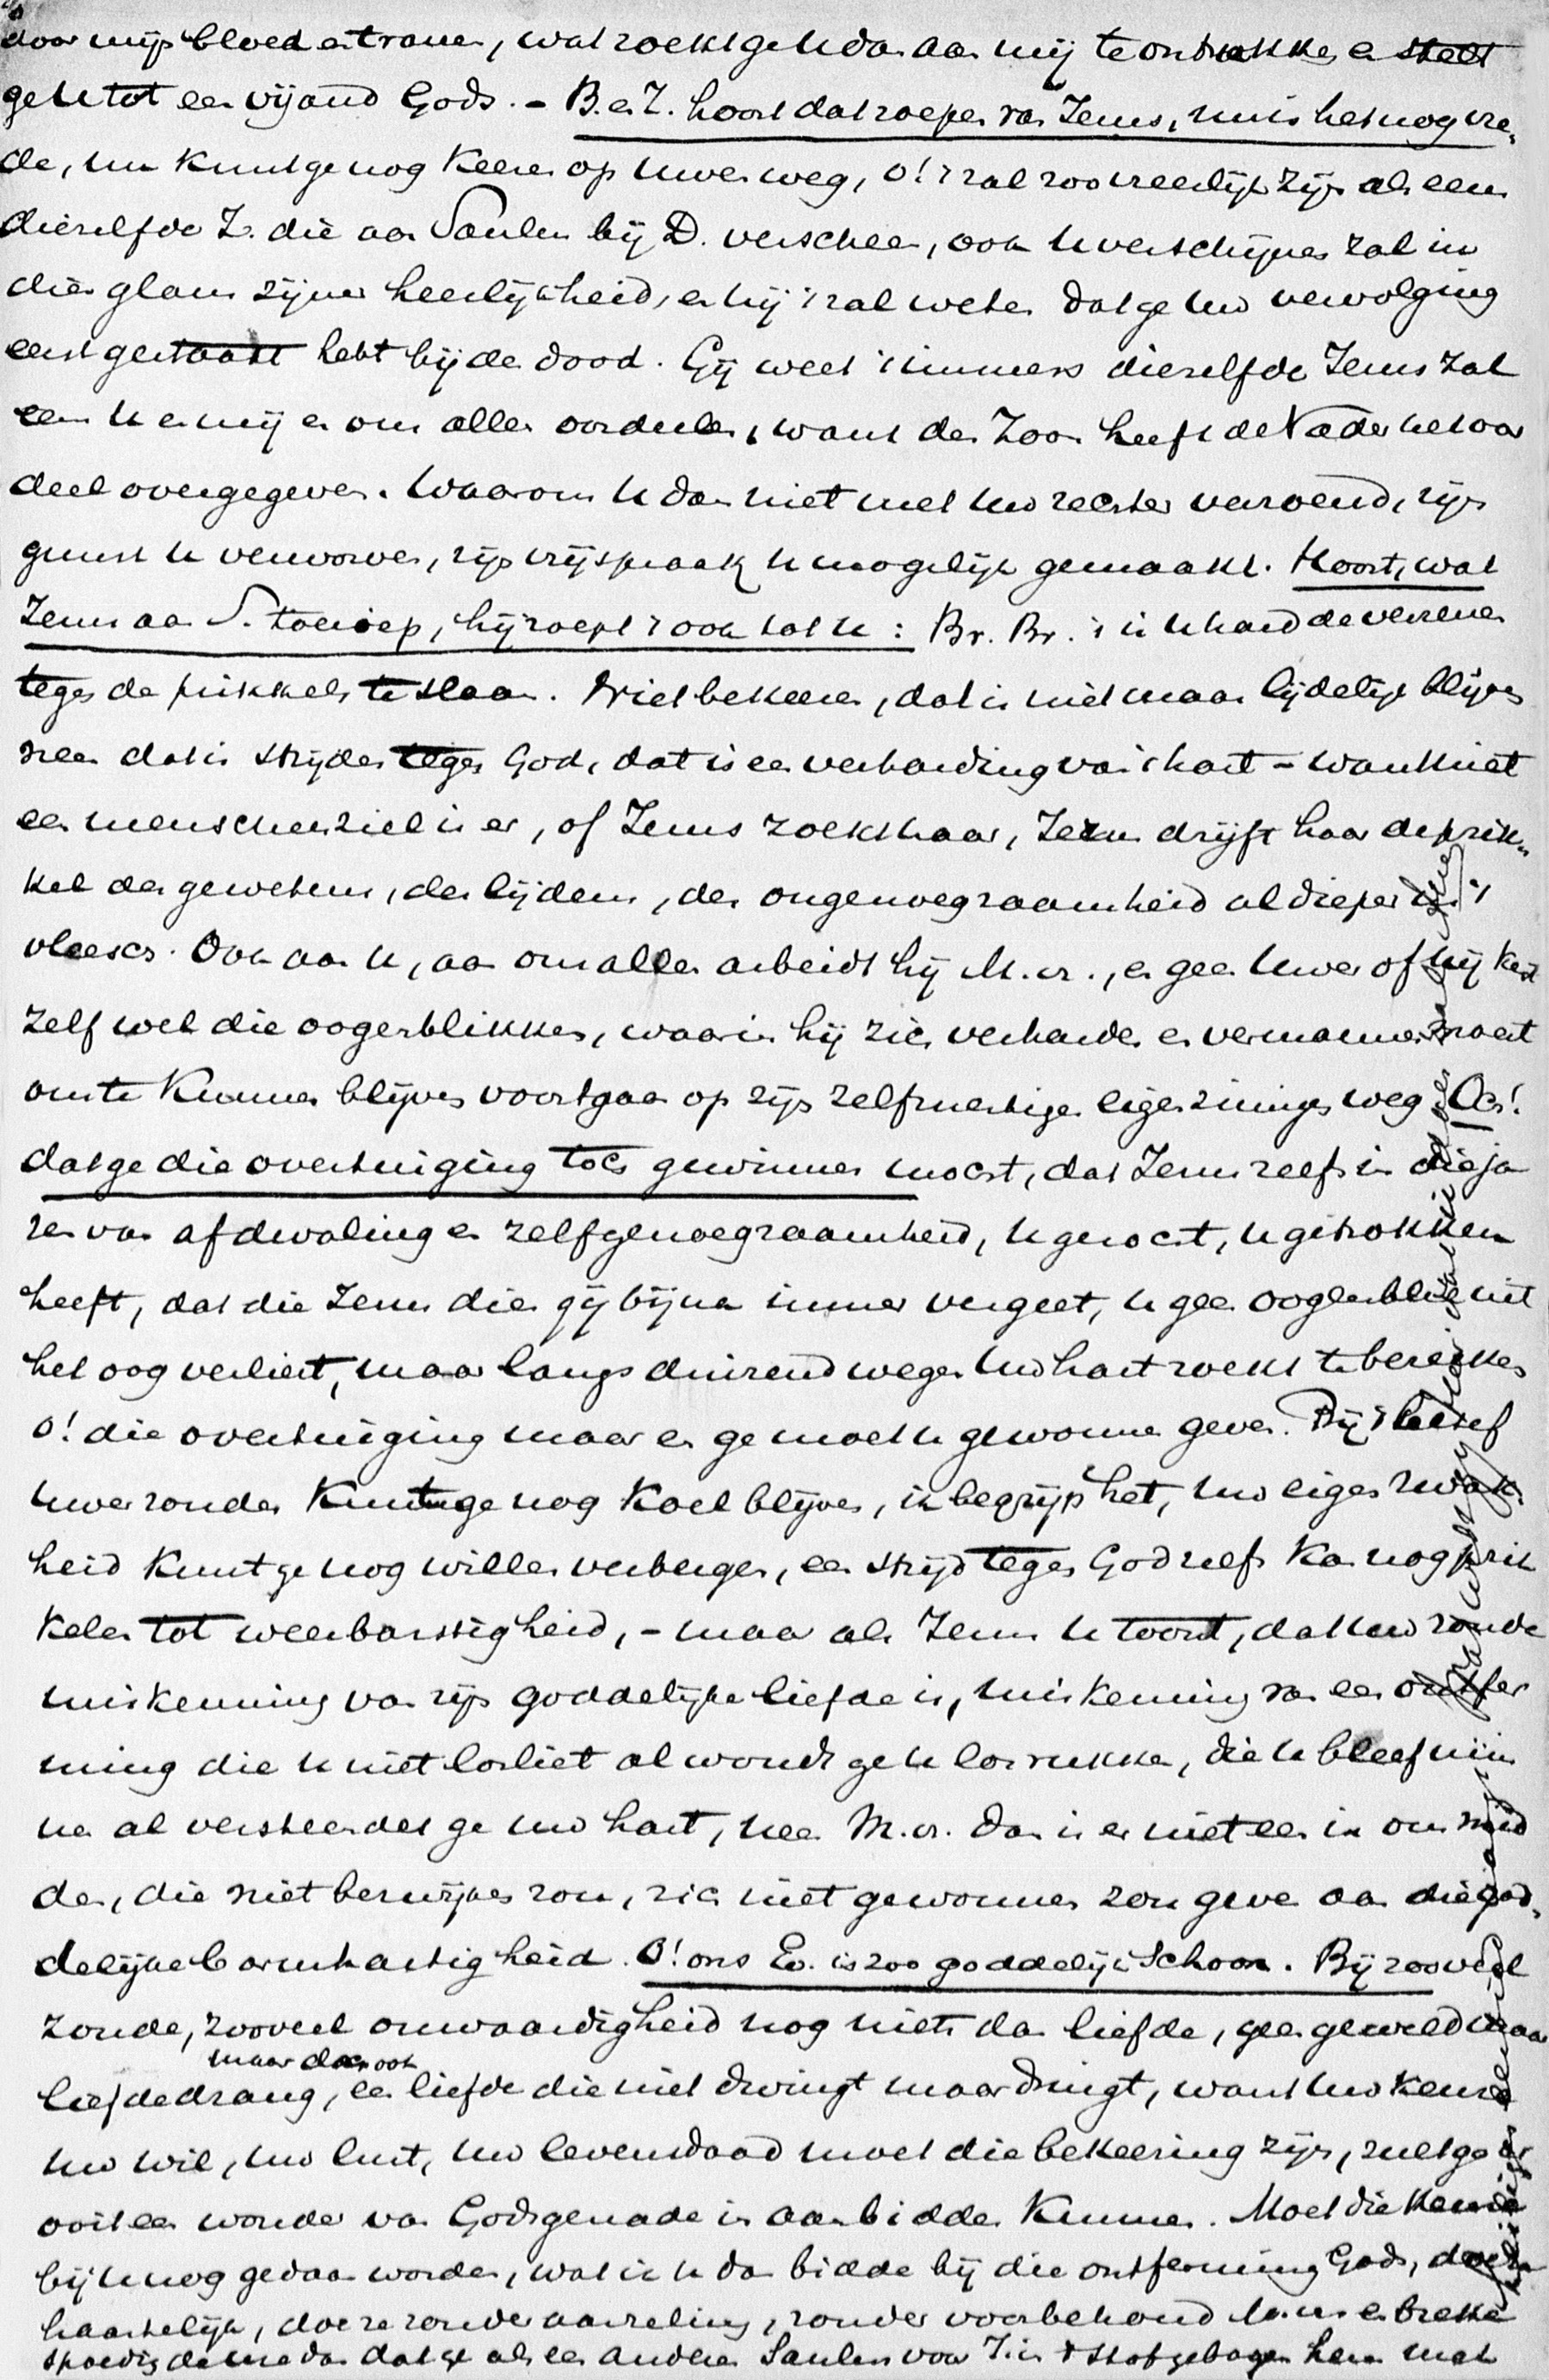 door mijn bloed en tranen, wat zoekt ge U dan aan mij te onttrekken en stelt
ge U tot een vijand Gods. – B. en Z. hoort dat roepen van Jezus, nu is het nog vre-
de, nu kunt ge nog keeren op Uwen weg, o! 't zal zoo vreeselijk zijn als een
diezelfde Z. die aan Saulus bij D. verscheen, ook U verschijnen zal in
dien glans zijner heerlijkheid, en hij 't zal weten dat ge Uw vervolging
eerst gestaakt hebt bij den dood. Gij weet 't immers diezelfde Jezus zal
eens U en mij en ons allen oordeelen, want den Zoon heeft de Vader het oor
deel overgegeven. Waarom U dan niet met Uw rechter verzoend, zijn
gunst U verworven, zijn vrijspraak U mogelijk gemaakt. Hoort, wat
Jezus aan S. toeriep, hij roept 't ook tot U: Br. Br. 't is U hard de verzenen
tegen de prikkels te slaan. Niet bekeeren, dat is niet maar lijdelijk blijven
neen dat is strijden tegen God, dat is een verharding van 't hart – want niet
een menschenziel is er, of Jezus zoekt haar, Jezus drijft haar de prik-
kel des gewetens, des lijdens, der ongenoegzaamheid al dieper in 't
vleesch. Ook aan U, aan ons allen arbeidt hij M. vr., en geen Uwer of hij kent
zelf wel die oogenblikken, waarin hij zich verharden en vermannen moest
om te kunnen blijven voortgaan op zijn zelfzuchtigen eigenzinnigen weg. Och!
dat ge die overtuiging toch gewinnen mocht, dat Jezus zelfs in die ja
ren van afdwaling en zelfgenoegzaamheid, U gezocht, U getrokken
heeft, dat die Jezus dien gij bijna immer vergeet, U geen oogenblik uit
het oog verliest, maar langs duizend wegen Uw hart zoekt te bereiken
o! die overtuiging maar en ge moet U gewonnen geven. Bij 't besef
Uwer zonden kunt ge nog koel blijven, ik begrijp het, Uw eigen zwak-
heid kunt ge nog willen verbergen, een strijd tegen God zelfs kan nog prik
kelen tot weerbarstigheid, – maar als Jezus U toont, dat Uw zonde
miskenning van zijn goddelijke liefde is, miskenning van een ontfer
ming die U niet losliet al wondt ge U losrukken, die U bleef min
nen al versteendet ge Uw hart, neen M. vr. dan is er niet een in ons mid
den, die niet bezwijken zou, zich niet gewonnen zou geven aan die god-
delijke barmhartigheid. O! ons Ev. is zoo goddelijk schoon. Bij zooveel
zonde, zooveel onwaardigheid nog niets dan liefde, geen geweld maar
maar doch ook
liefdedrang, een liefde die niet dwingt maar dringt, want Uw keuze
Uw wil, Uw lust, Uw levensdaad moet die bekeering zijn, zult ge er
ooit een wonder van Gods genade in aanbidden kunnen. Moet die keuze
bij U nog gedaan worden, wat ik U dan bidde bij die ontferming Gods, doet ze
haastelijk, doe ze zonder aarzeling, zonder voorbehoud M. vr. en breke
spoedig de ure dan dat ge als een andere Saulus voor J. in 't stof gebogen hem met